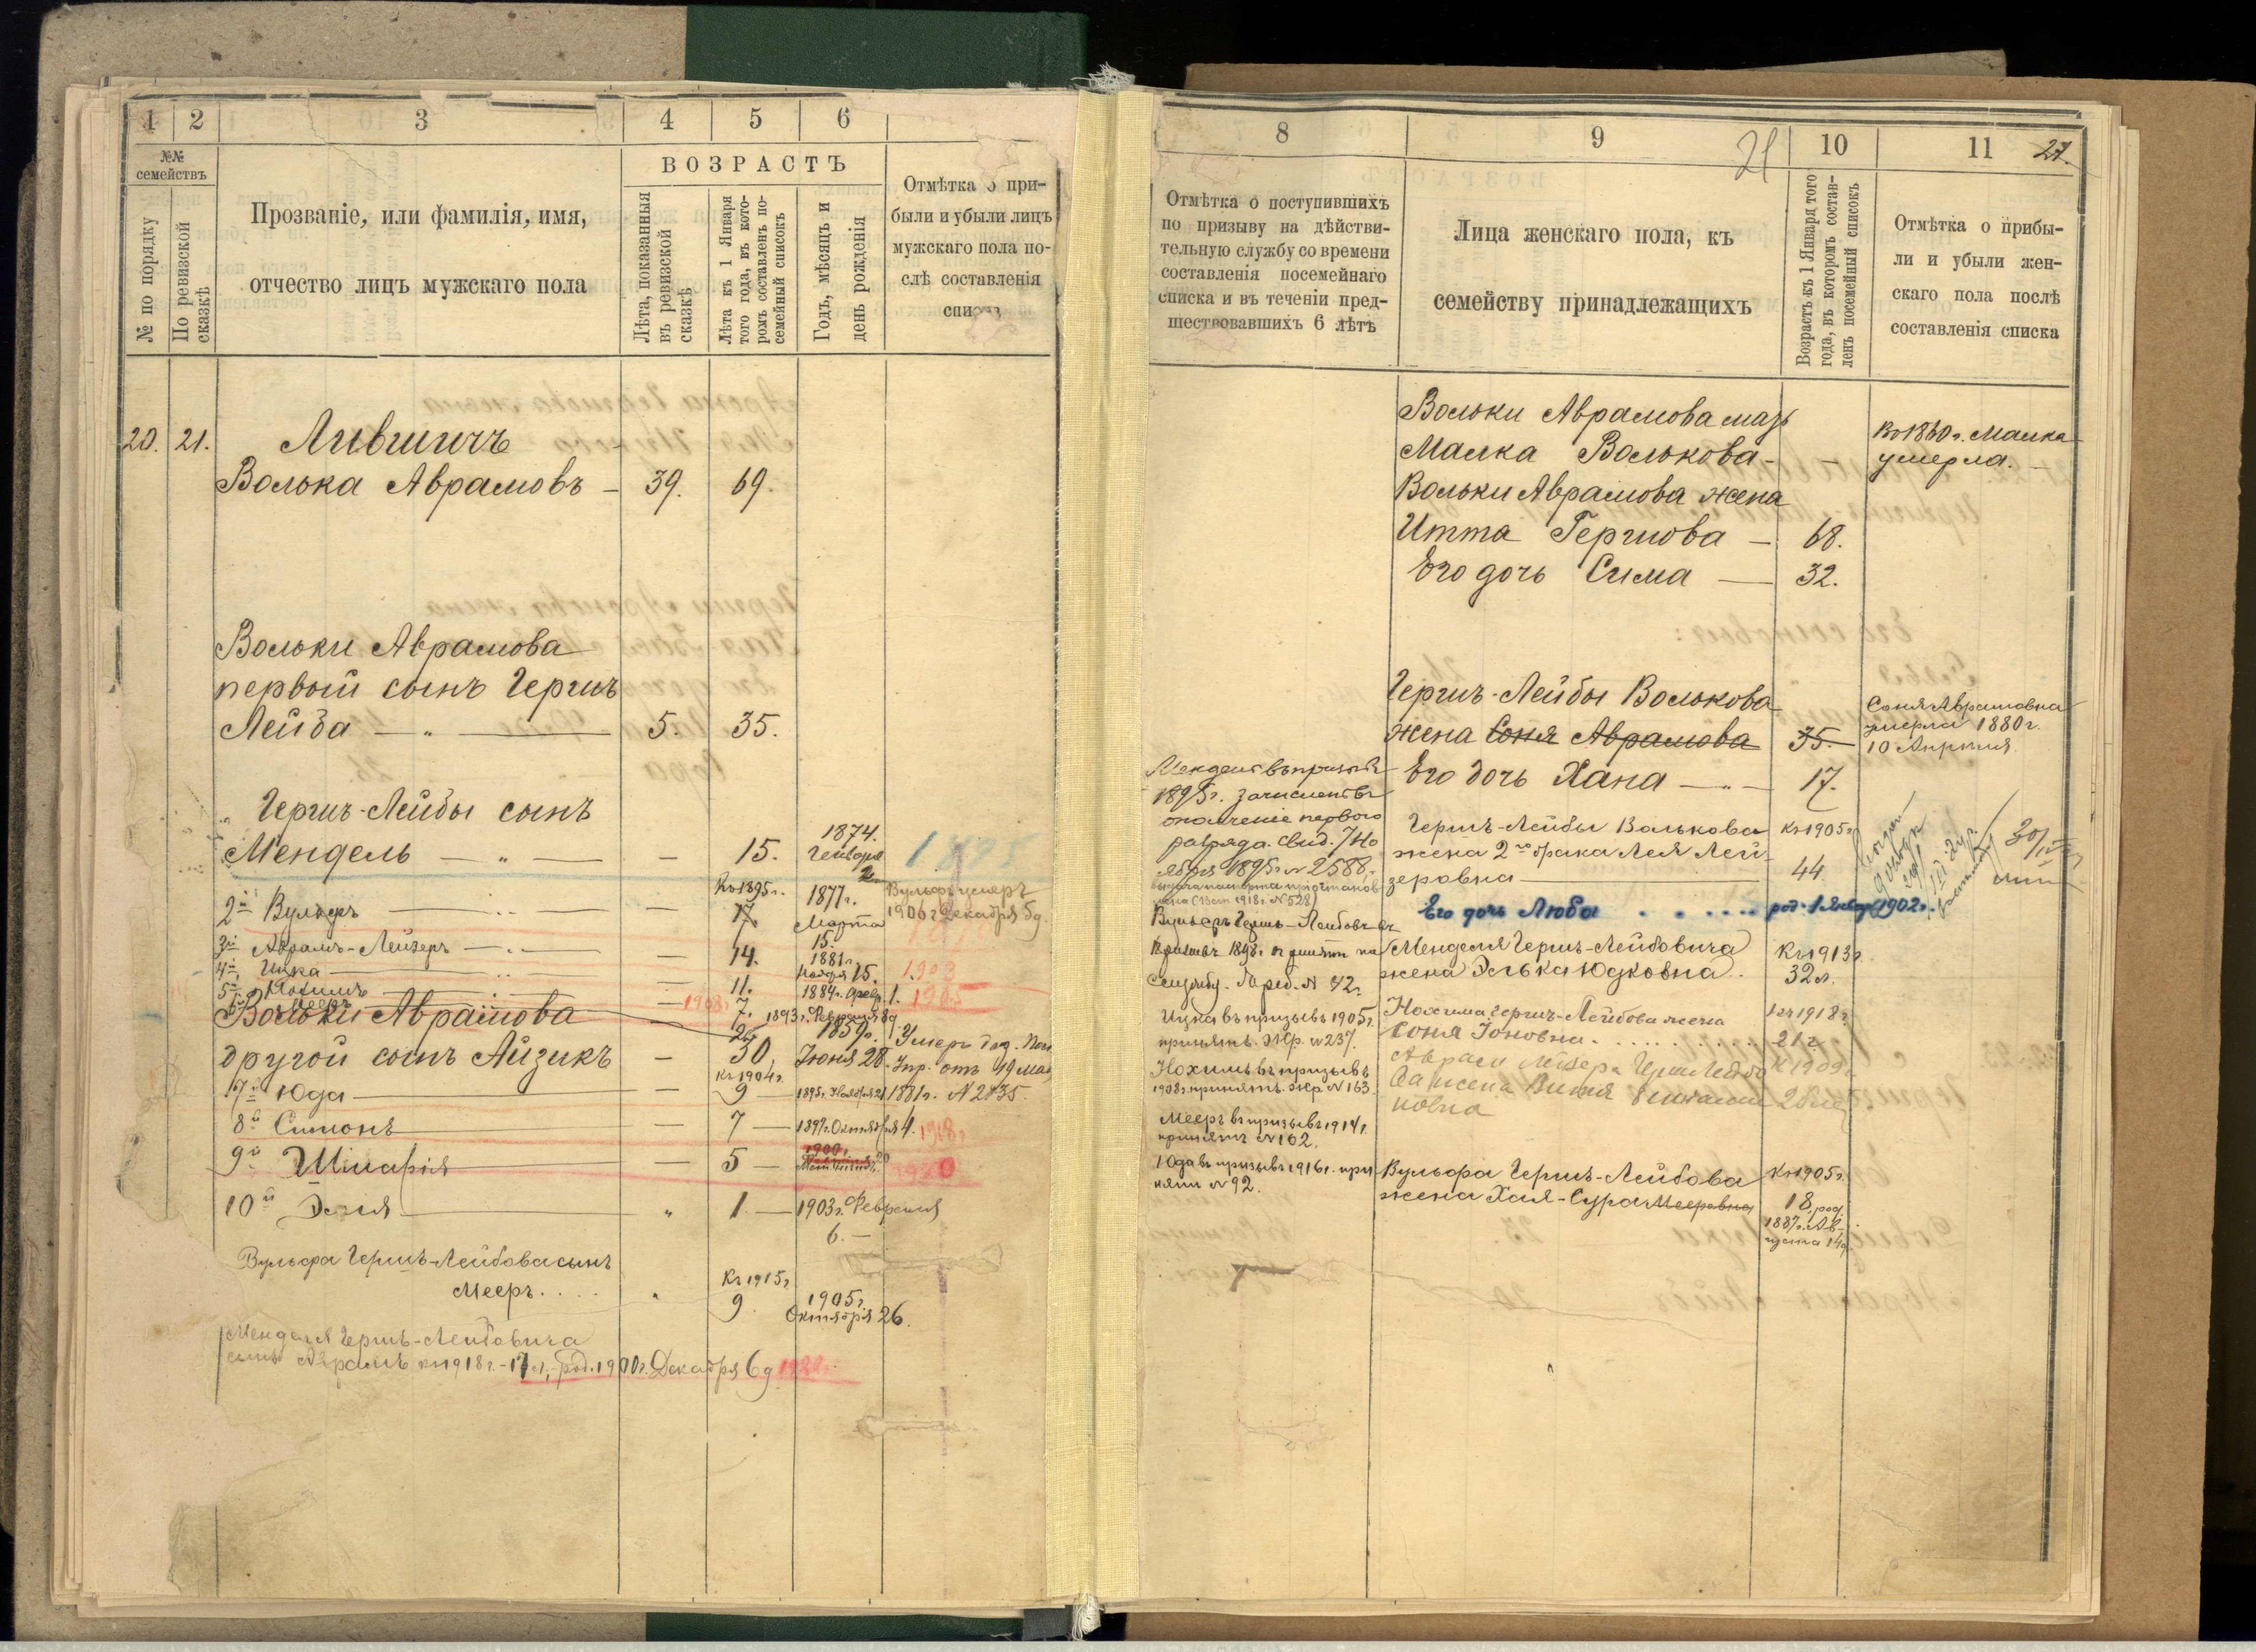 1 2 3 4 5 6
№№ семействъ
№ по порядку
По ревизской сказкѣ
Прозваніе, или фамилія, имя,
отчество лицъ мужскаго пола
ВОЗРАСТЪ
Лѣта, показанныя
въ ревизской
сказкѣ
Лѣта къ 1 Января
того года, въ кото-
ромъ составленъ по-
семейный списокъ
Годъ, мѣсяцъ и
день рожденія
Отмѣтка о при-
были и убыли лицъ
мужскаго пола по-
слѣ составленія
списка
20. 21. Лившичъ
Волька Аврамовъ — 39. 69.
Вольки Аврамова
первый сынъ Гершъ
Лейба — „ — 5. 35.
„ Гершъ-Лейбы сынъ
Мендель — „ — — 15. 1874. Генваря 2 1895
Къ 1895 г.
2й Вульфъ — 17. 1877 г. Марта 15. Вульфъ умеръ
1906 г. Декабря 5 д.
3й Аврамъ-Лейзеръ — 14. 1881 г.
4й Ицка — 11. Ноября 15. 1903
5й Нохимъ — 7. 1884 г. Февр. 1. 1905
6й Мееръ — 1893 г. Февраля 8 д.
1908 г.
Вольки Аврамова 1859 г.
другой сынъ Айзикъ — 30, Іюня 28. Умеръ
Упр. отъ 19 Мая
1881 г. N 2835.
Къ 1904 г.
7й Юда — 9 — 1895 г. Ноября 21
8й Симонъ — 7 — 1897 г. Октября 4. 1918 г.
9й Шмарія — 5 — 1900 г. 20 1920
10й Эля „ 1. — 1903 г. Февраля
6. —
Вульфа Гершъ-Лейбова сынъ
Мееръ . . . . „ Къ 1915 г. 9. 1905 г.
Октября 26.
Менделя Гершъ-Лейбовича
сынъ Аврамъ къ 1918 г. - 17 л., род. 1900 г. Декабря 6 д
8 9 10 11
21 27.
Отмѣтка о поступившихъ
по призыву на дѣйстви-
тельную службу со времени
составленія посемейнаго
списка и въ теченіи пред-
шествовавшихъ 6 лѣтъ
Лица женскаго пола, къ
семейству принадлежащихъ
Возрастъ къ 1 Января того
года, въ которомъ состав-
ленъ посемейный списокъ
Отмѣтка о прибы-
ли и убыли жен-
скаго пола послѣ
составленія списка
Вольки Аврамова мать
Малка Волькова — — Въ 1860 г. Малка
умерла. —
Вольки Аврамова жена
Итта Гершова — 68.
Его дочь Сима — 32.
Гершъ-Лейбы Волькова
жена Соня Аврамова 35. Соня Аврамовна
умерла 1880 г.
10 Апрѣля.
Его дочь Хана — „ — 17.
Гершъ-Лейбы Волькова Къ 1905 г.
жена 2го брака Лея Лей-
зеровна — 44
Его дочь Люба . . . . . род. 1 Января 1902 г.
Менделя Гершъ-Лейбовича Къ 1913 г.
жена Элька Юдковна. 32 л.
Нохима Гершъ-Лейбова жена Къ 1918 г.
Соня Іоновна . . . . . . 21 г.
Аврам Лейзера Герш Лейбо Къ 1909 г.
ва жена
новна
Вульфа Гершъ-Лейбова Къ 1905 г.
жена Хая-Сура Мееровна 18, род.
1887 г. Ав-
густа 14 д.
Мендель въ призывъ
1895 г. зачисленъ въ
ополченіе перваго
разряда. Свид. 7 Но
ября 1895 г. N 2588.
Вульфъ Гершъ-Лейбовъ въ
призывъ 1898 г. принятъ на
Службу. Жреб. N 42.
Ицка въ призывъ 1905 г.
принятъ. Жр. N 237.
Нохимъ въ призывъ
1908 г. принятъ. Жр. N 163
Мееръ въ призывъ 1914 г.
принятъ N 102.
Юда въ призывъ 1916 г. при
нятъ N 92.